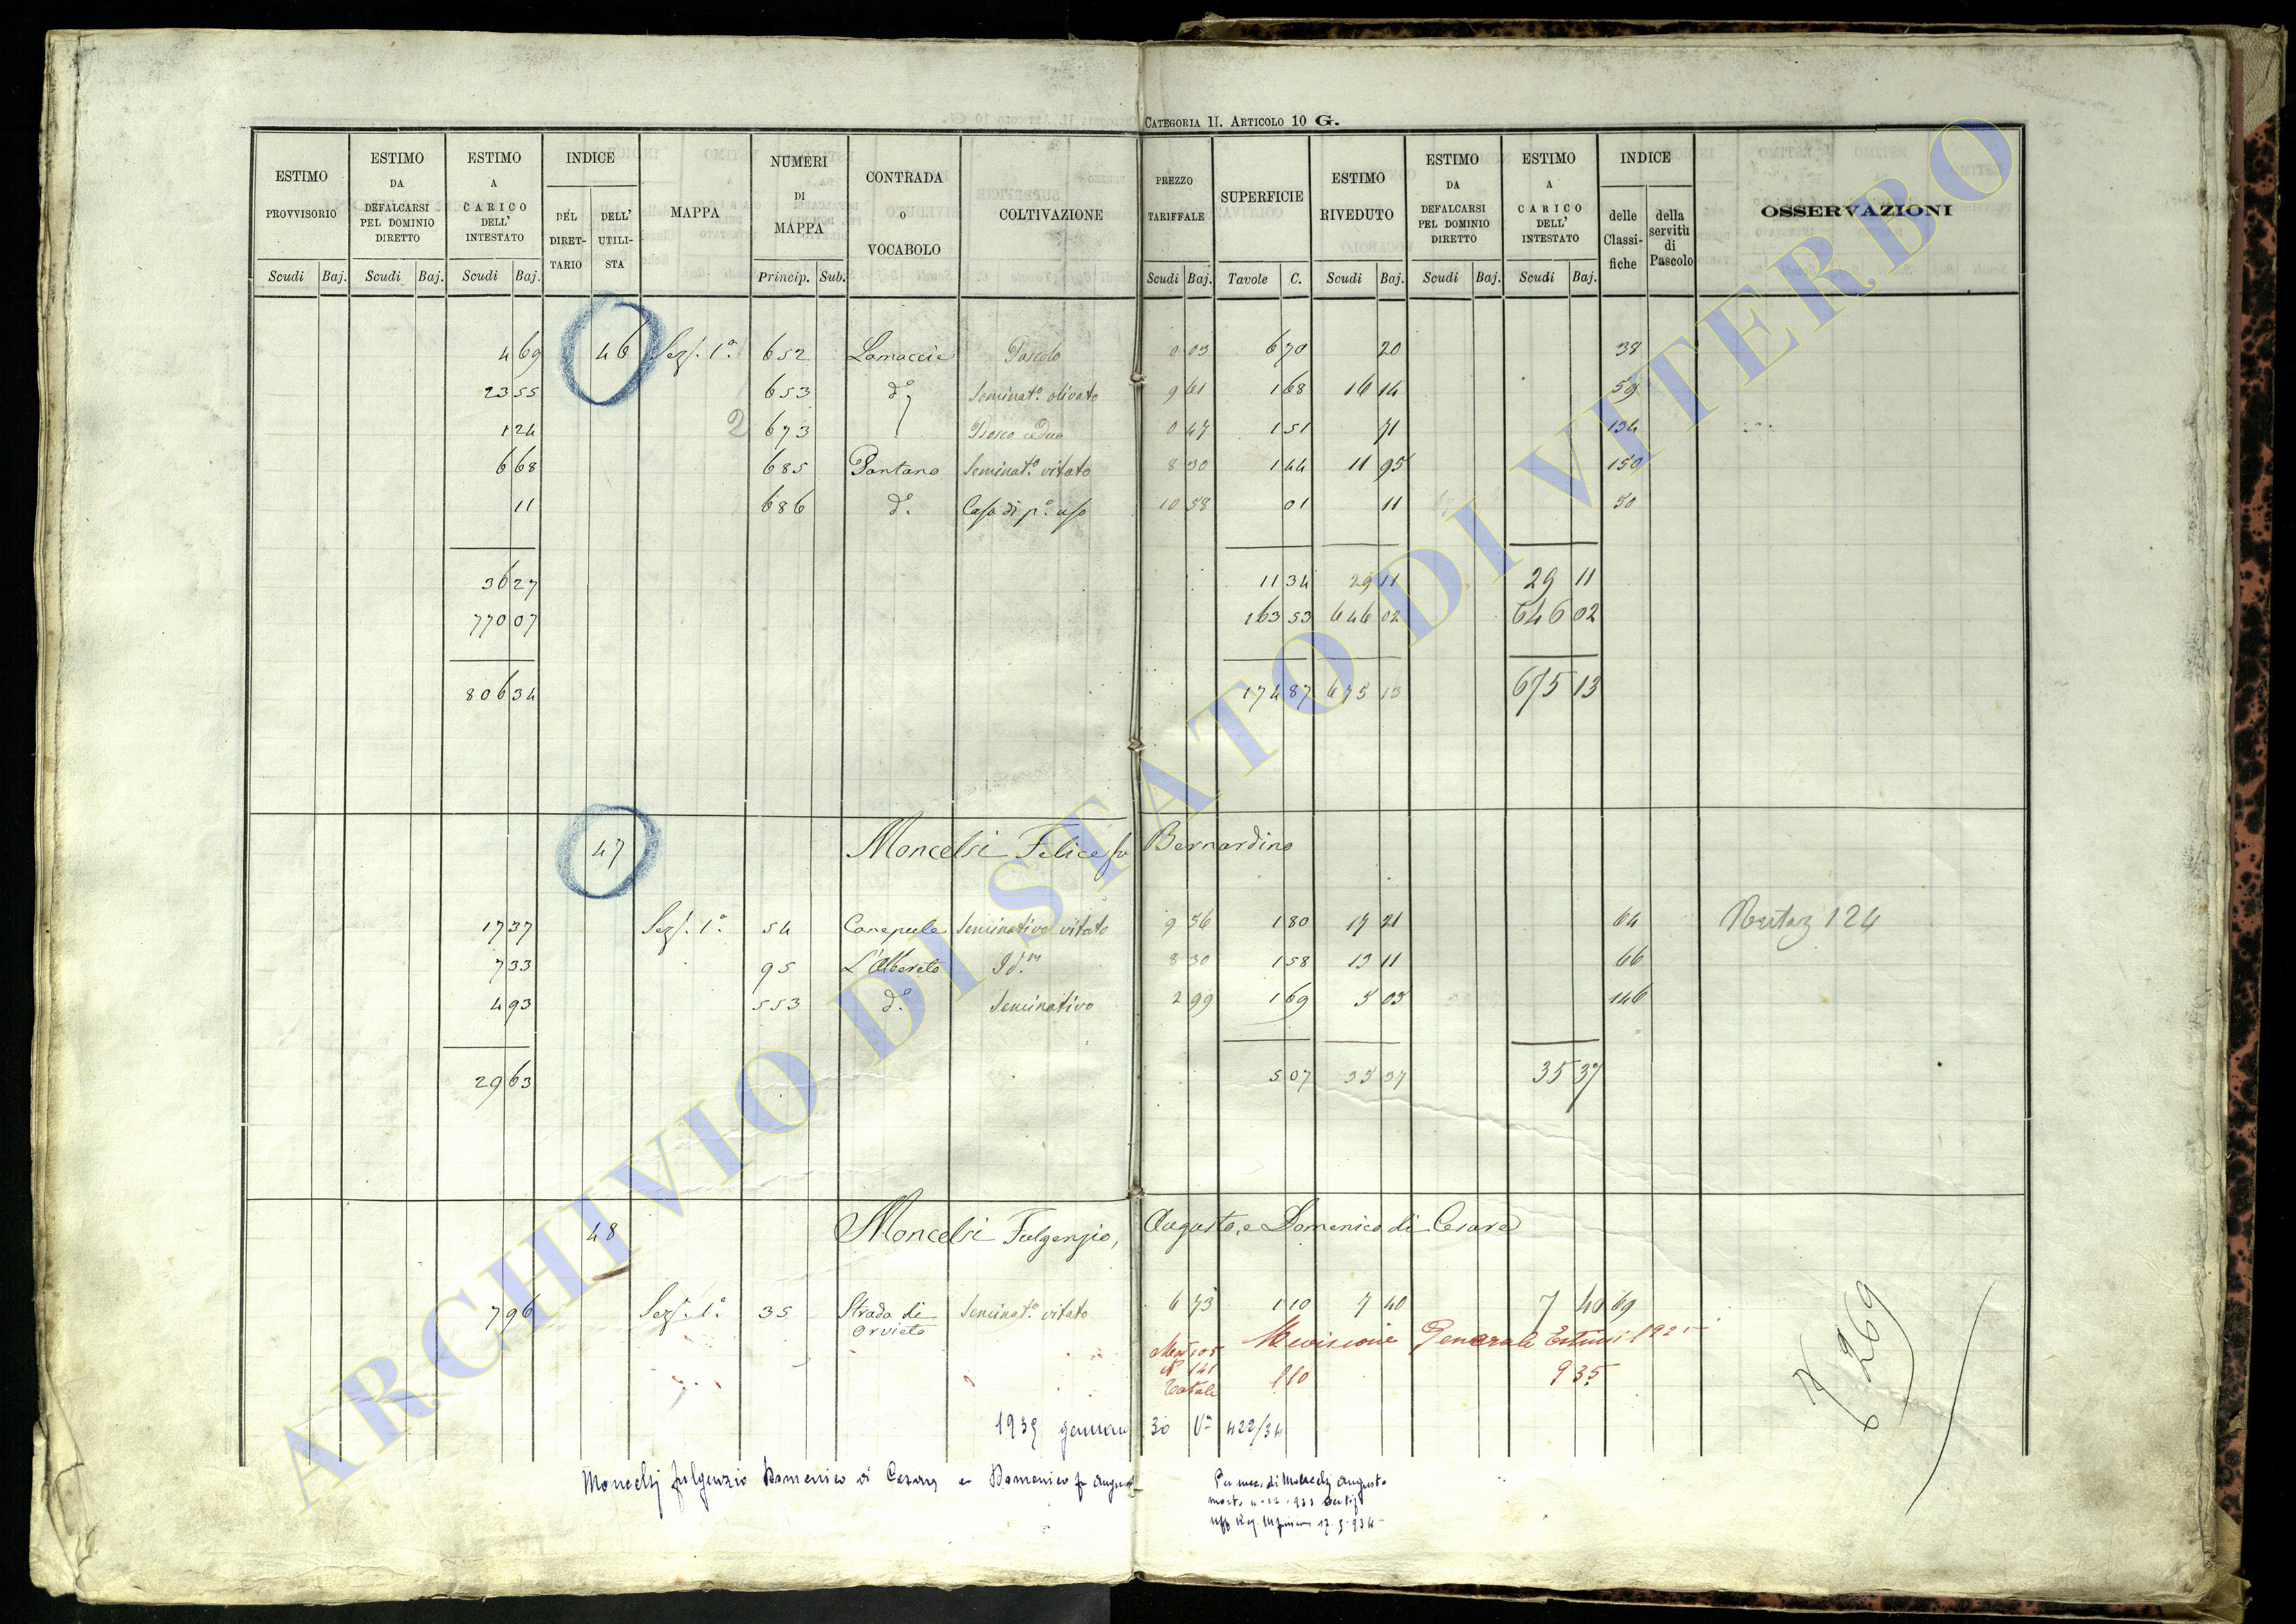 CATEGORIA II. ARTICOLO 10 G.
ESTIMO PROVVISORIO Scudi Baj. ESTIMO DA DEFALCARSI PEL DOMINIO DIRETTO Scudi Baj. ESTIMO A CARICO DELL' INTESTATO Scudi Baj. INDICE DEL DIRETTARIO DELL' UTILISTA MAPPA NUMERI DI MAPPA Princip. Sub. CONTRADA O VOCABOLO COLTIVAZIONE PREZZO TARIFFALE Scudi Baj. SUPERFICIE Tavole C. ESTIMO RIVEDUTO Scudi Baj. ESTIMO DA DEFALCARSI PEL DOMINIO DIRETTO Scudi Baj. ESTIMO A CARICO DELL' INTESTATO Scudi Baj. INDICE delle Classifiche della servitù di Pascolo OSSERVAZIONI
4 69 46 Sez. 1ª 652 Lamaccie Pascolo 0 03 6 70 20 38
23 55 653 dº Seminatº olivato 9 61 1 68 16 14 59
1 24 2 673 Bosco ceduo 0 47 1 51 71 134
6 68 685 Pantano Seminatº vitato 8 30 1 44 11 95 150
11 686 dº Casa di pº uso 10 58 01 11 50
36 27 11 34 29 11 29 11
770 07 163 53 646 02 646 02
806 34 174 87 675 13 675 13
47 Moncelsi Felice fu Bernardino
17 37 Sez. 1ª 54 Canepule Seminativo vitato 9 56 1 80 17 21 64 124
7 33 95 L'Albereto Idm 8 30 1 58 13 11 66
4 93 553 dº Seminativo 2 99 1 69 5 05 146
29 63 5 07 35 37 35 37
48 Moncelsi Fulgenzio, Augusto, e Domenico di Cesare
7 96 Sez. 1ª 35 Strada di Orvieto Seminatº vitato 6 73 1 10 7 40 7 40 69
Revisione Generale Estimi 192
Nº 141
Totale 110 935
269
1935 gennaio 30 Vª 422/34
Moncelsj fulgenzio Domenico di Cesare e Domenico fu August
di Moncelsj Augusto
ARCHIVIO DI STATO DI VITERBO